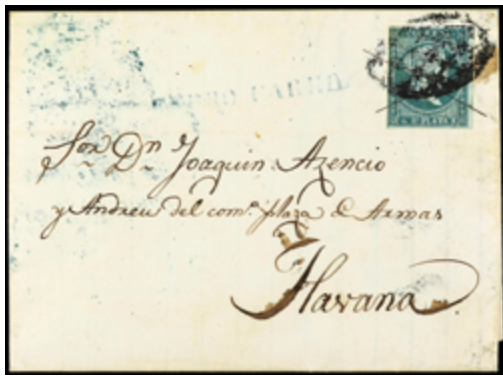 Sor. Dn. Joaquin Azencio
y Andreu del comº. plaza de Armas
Havana